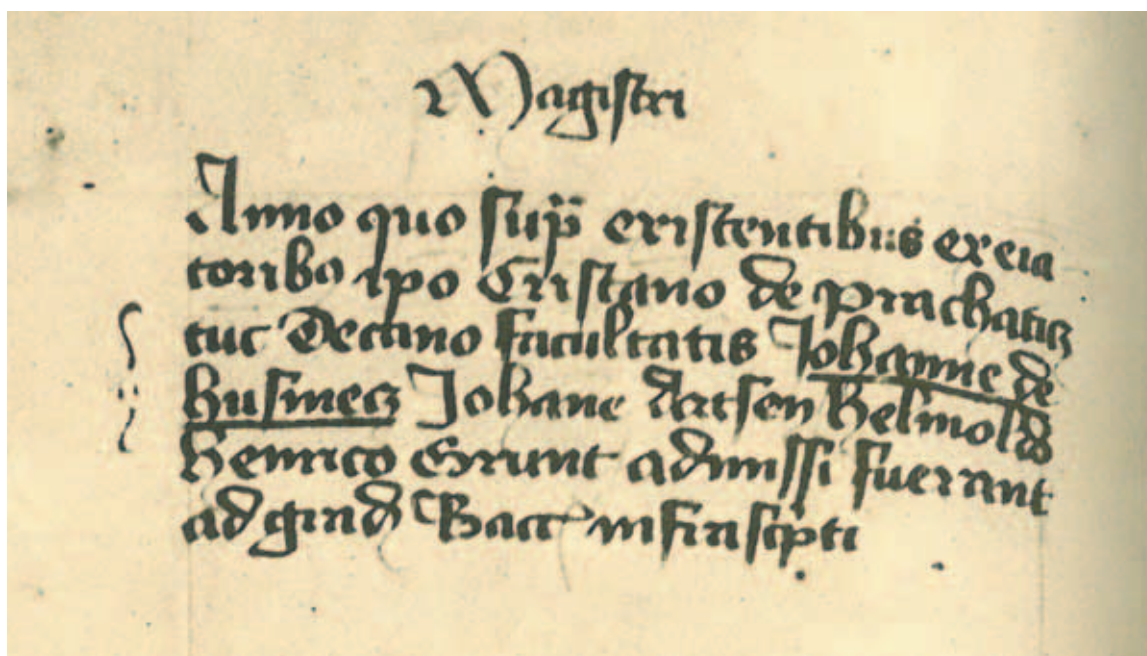 Magistri
Anno quo sup̄ existentibus exeīa
toribꝰ ip̄o Cristano de prachaticz
tūc Decano facultatis Johanne de
husinecz Johāne Helmoldo
Henrico Grunt admissi fuerant
ad gradū Bacc infrascpti